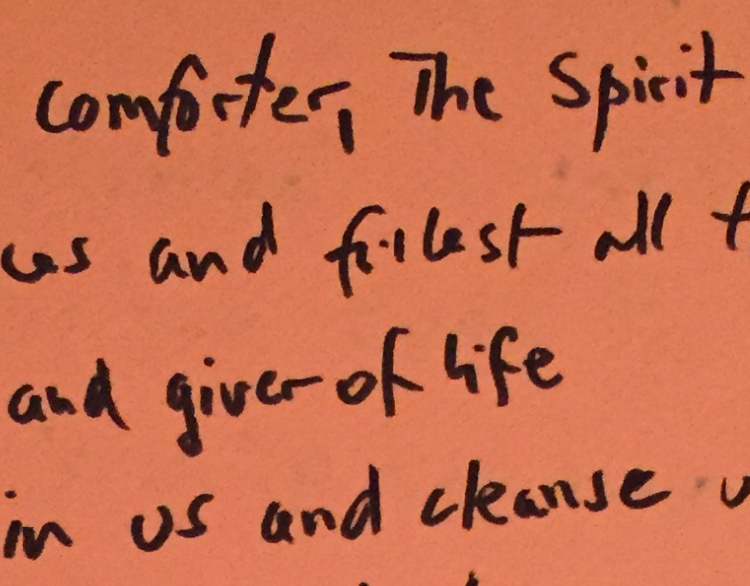 Comforter, The Spirit
ces and fillest all t
and giver of life
in us and cleanse u